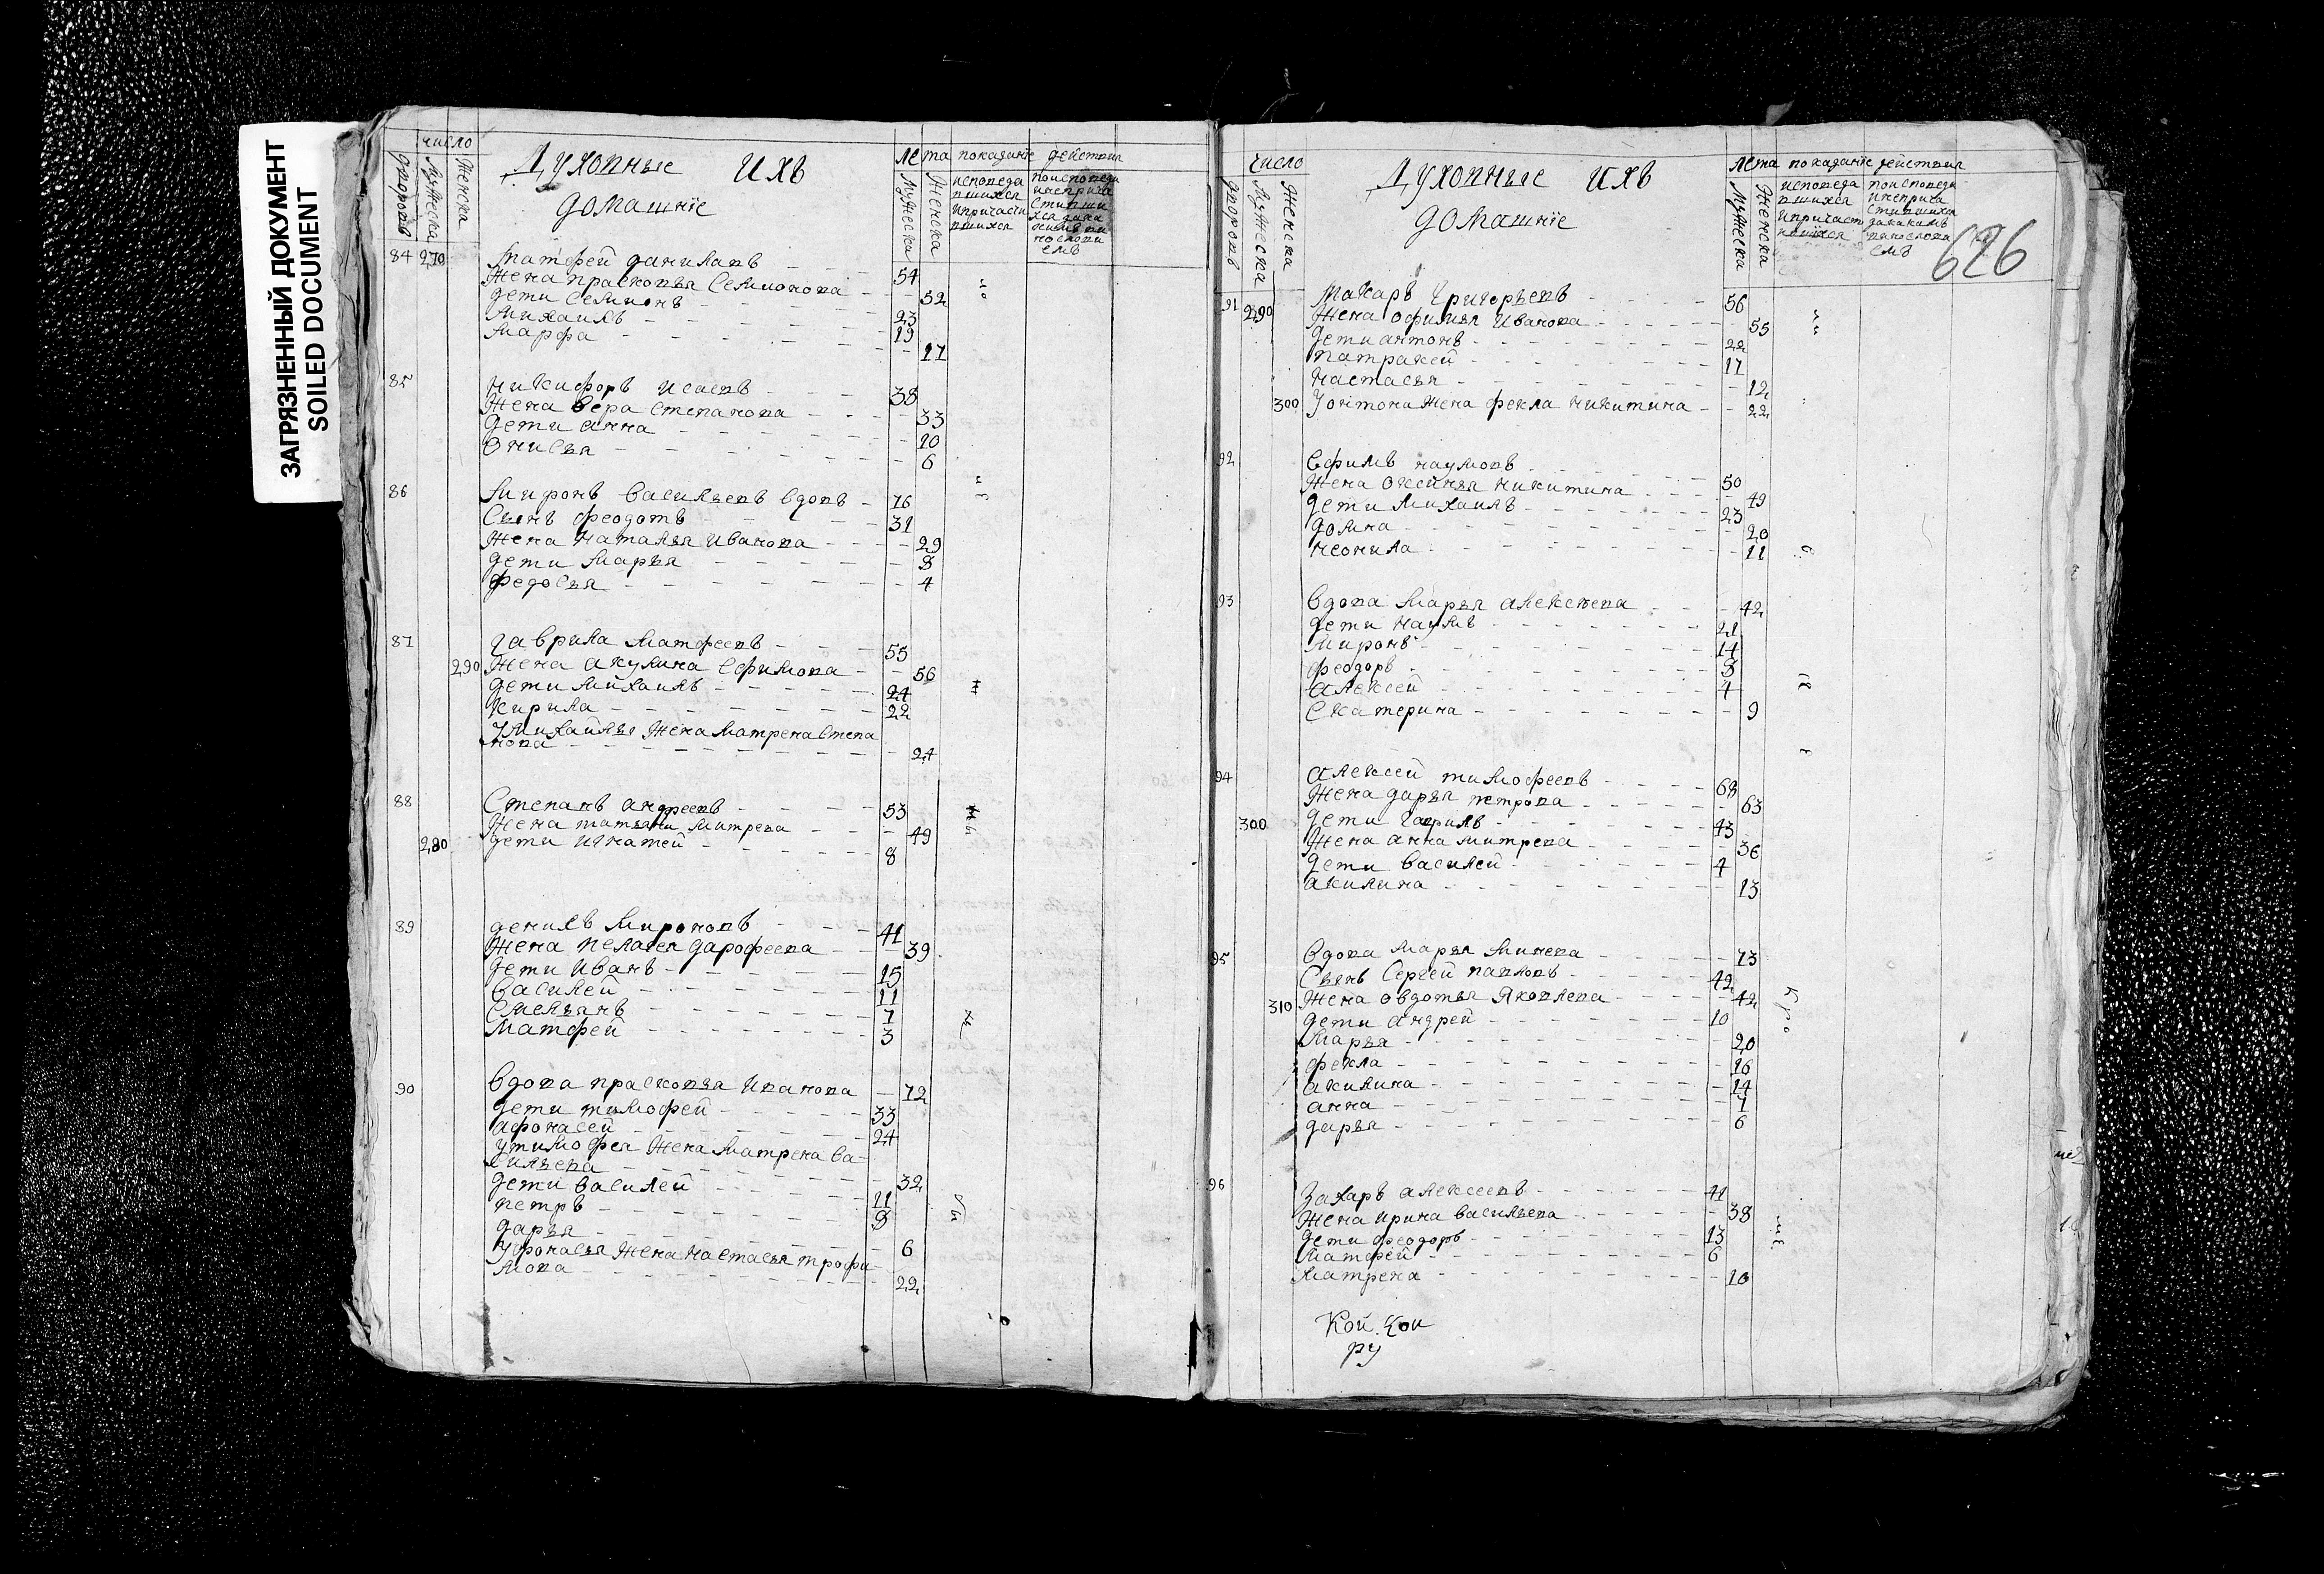 ЗАГРЯЗНЕННЫЙ ДОКУМЕНТ
SOILED DOCUMENT
число
дворовъ
мужеска
женска
Духовные ихъ
домашнїе
лета
мужеска
женска
показанїе действия
исповеда
вшихся
и причасти
вшихся
84 270 Матфей данилавъ 54
Жена прасковья Семионова 52
дети Семионъ 23
Михаилъ 19
Марфа 17
85 Никифоръ исаевъ 38
Жена Вера степанова 33
дети анна 10
Онисья 6
86 Миронъ васильевъ вдовъ 76
Сынъ феодотъ 31
Жена наталья иванова 29
дети марья 8
федосья 4
87 Гаврила Матфеевъ 55
290 Жена акулина Ефимова 56
дети михаилъ 24
Кирила 22
У михайлы жена матрена степа
нова 24
88 Степанъ андреевъ 53
Жена татьяни митрева 49
280 дети игнатей 8
89 данилъ Мироновъ 41
Жена пелагея дарофеева 39
дети иванъ 15
василей 11
Емельянъ 7
Матфей 3
90 вдова прасковья ивановa 72
дети тимофей 33
афонасей 24
у тимофея жена матрена ва
сильева 32
дети василей 11
петръ 8
дарья 6
У афонасья жена настасья трофи
мова 22
число
дворовъ
мужеска
женска
Духовные ихъ
домашнїе
лета
мужеска
женска
показанїе действия
исповеда
вшихся
и причаст
вшихся
626
91 290 Макаръ Григорьевъ 56
Жена офимья иванова 55
дети антонъ 22
патракей 17
настасья 12
300 У онтона жена фекла никитина 22
92 Ефимъ наумовъ 50
Жена оксинья никитина 49
дети михаилъ 23
домна 20
неонила 11
93 вдова марья алексеева 42
дети наумъ 21
миронъ 14
феодоръ 8
алексей 4
Екатерина 9
94 алексей тимофеевъ 68
Жена дарья петрова 63
300 дети гаврилъ 43
Жена анна митрева 36
дети василей 4
акилина 13
95 вдова марья минева 73
Сынъ Сергей павловъ 42
310 Жена овдотья яковлева 42
дети андрей 10
Марья 20
фекла 16
акилина 14
анна 7
дарья 6
96 Захаръ алексеевъ 41
Жена ирина васильева 38
дети феодоръ 13
Матфей 6
Матрена 10
ру